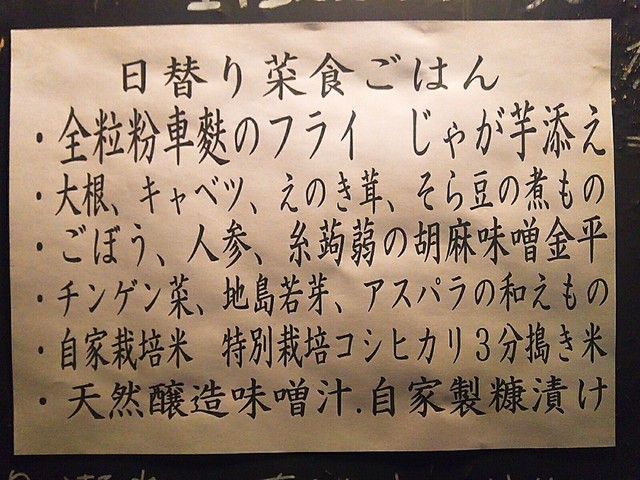 日替り菜食ごはん
・全粒粉車麩のフライ　じゃが芋添え
・大根、キャベツ、えのき茸、そら豆の煮もの
・ごぼう、人参、糸蒟蒻の胡麻味噌金平
・チンゲン菜、地島若芽、アスパラの和えもの
・自家栽培米　特別栽培コシヒカリ3分搗き米
・天然醸造味噌汁.自家製糠漬け